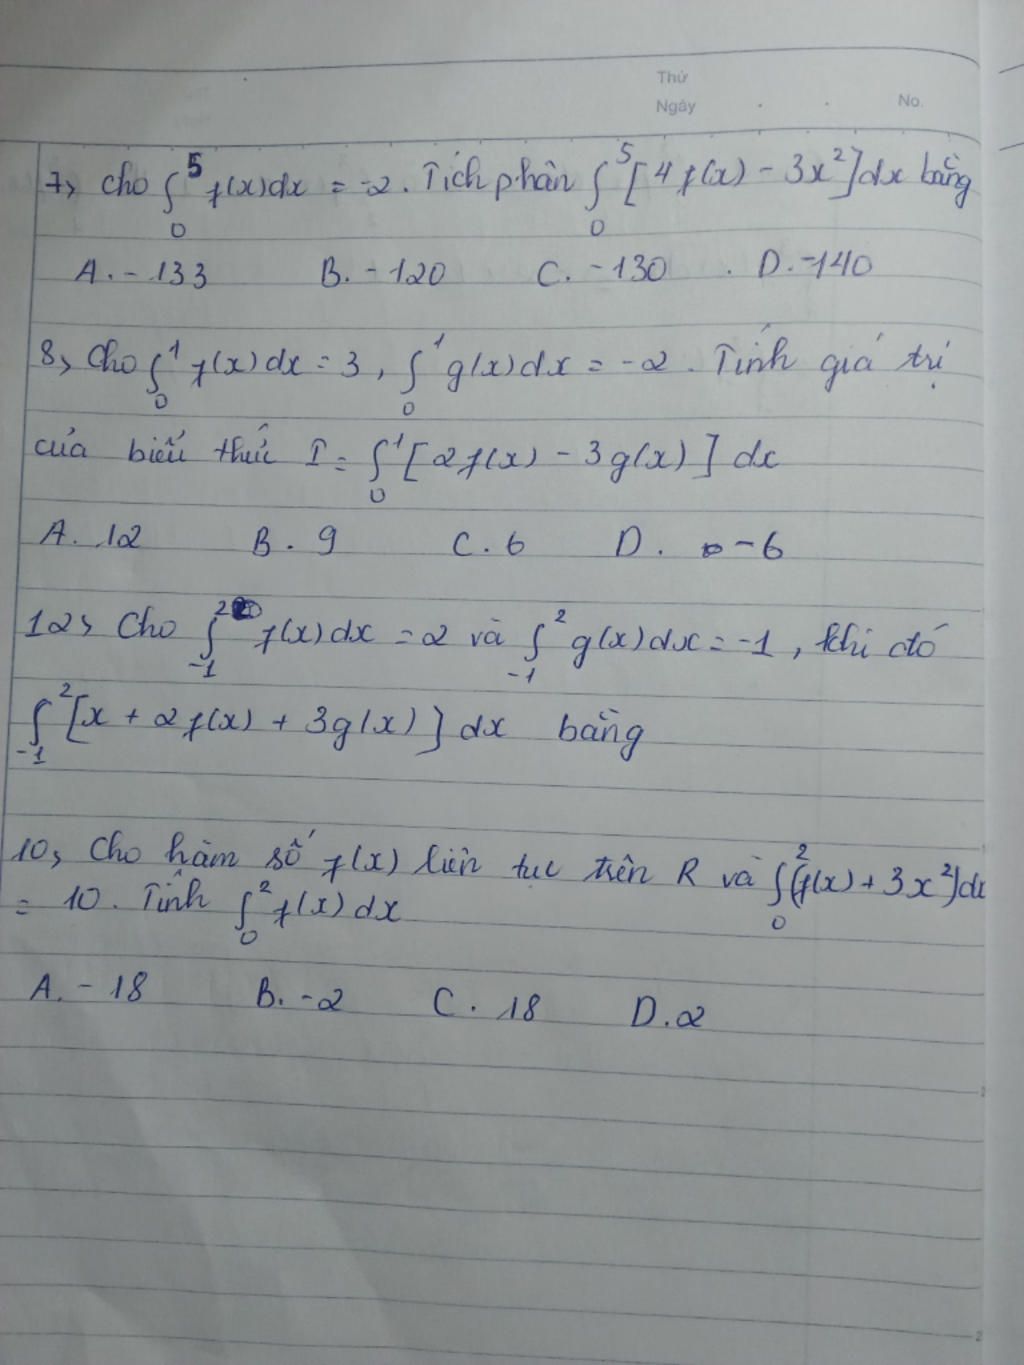 Thứ
Ngày . . No.
7, Cho ∫₀⁵ f(x)dx = -2. Tích phân ∫₀⁵ [4f(x) - 3x²]dx bằng
A. -133 B. -120 C. -130 . D. -140
8, Cho ∫₀¹ f(x)dx = 3, ∫₀¹ g(x)dx = -2. Tính giá trị
của biểu thức I = ∫₀¹ [2f(x) - 3g(x)] dx
A. 12 B. 9 C. 6 D. -6
12, Cho ∫₋₁² f(x)dx = 2 và ∫₋₁² g(x)dx = -1, khi đó
∫₋₁² [x + 2f(x) + 3g(x)] dx bằng
10, Cho hàm số f(x) liên tục trên R và ∫₀² (f(x) + 3x²)dx
= 10. Tính ∫₀² f(x)dx
A. -18 B. -2 C. 18 D. 2